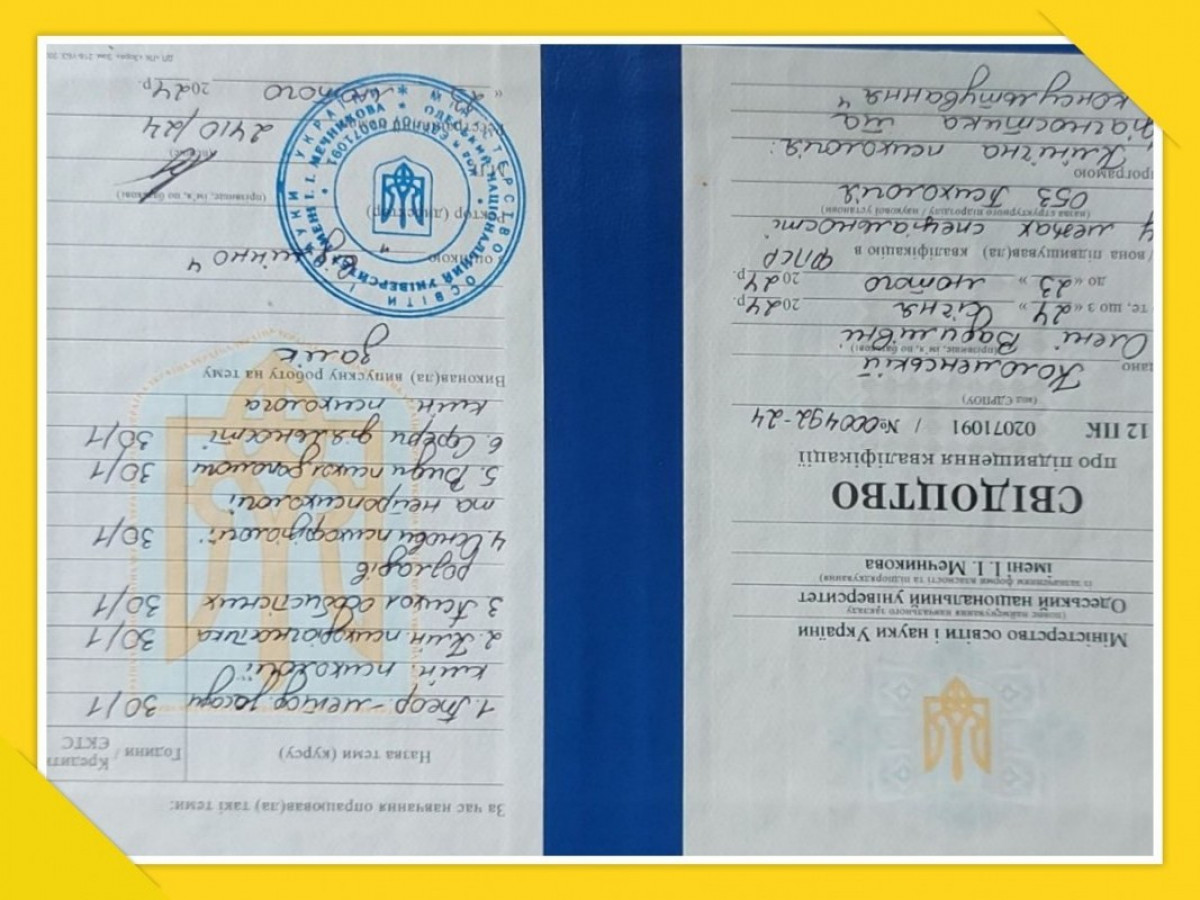 Міністерство освіти і науки України
(повне найменування навчального закладу
Одеський національний університет
із зазначенням форми власності та підпорядкування)
імені І. І. Мечникова
СВІДОЦТВО
про підвищення кваліфікації
12 ПК 02071091 / №000492-24
(код ЄДРПОУ)
Коломенській
(прізвище, ім'я, по батькові)
Олені Вадимівні
те, що з «24» січня 2024р.
до «23» лютого 2024р.
вона підвищував(ла) кваліфікацію в ФПСР
(назва структурного підрозділу / наукової установи)
у межах спеціальності
053 Психологія
програмою
Клінічна психологія:
діагностика та
консультування
За час навчання опрацював(ла) такі теми:
Назва теми (курсу) Години / Кредити ЄКТС
1. Теор-метод. засади 30/1
клін. психології
2. Клін психодіагностика 30/1
3. Психол особистісних 30/1
розладів
4. Основи психофізіології 30/1
та нейропсихології
5. Види психол допомоги 30/1
6. Сфери діяльності 30/1
клін. психолога
Виконав(ла) випускну роботу на тему
залік
з оцінкою відмінно
ректор (директор)
(прізвище, ім'я, по батькові)
(підпис)
2410/24
«23» лютого 2024р.
МІНІСТЕРСТВО ОСВІТИ І НАУКИ УКРАЇНИ
ОДЕСЬКИЙ НАЦІОНАЛЬНИЙ УНІВЕРСИТЕТ ІМЕНІ І. І. МЕЧНИКОВА
02071091